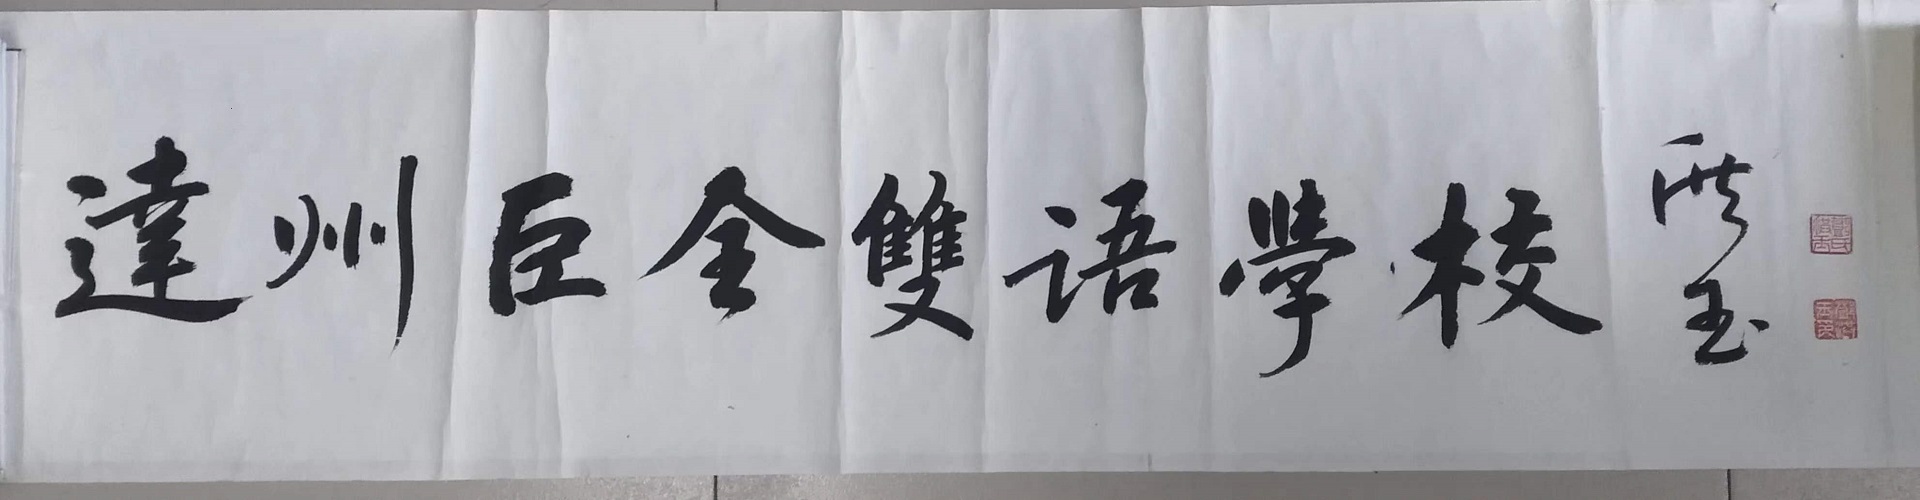 達州巨全雙语學校